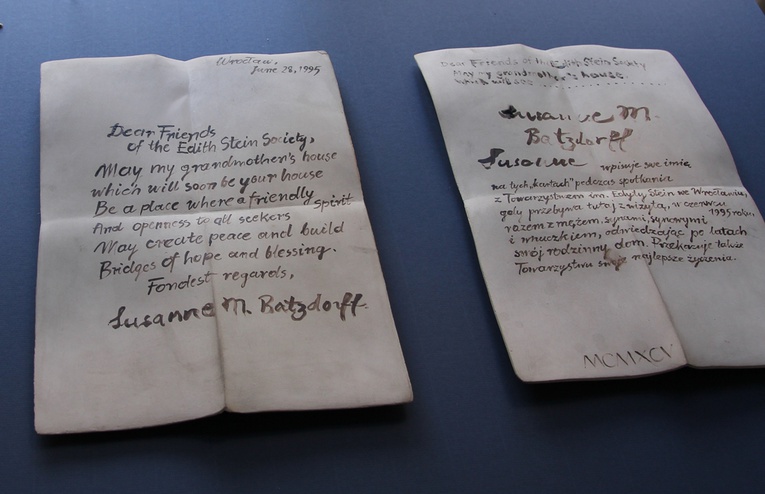 Wrocław,
June 28, 1995
Dear Friends
of the Edith Stein Society,
May my grandmother's house
which will soon be your house
Be a place where a friendly spirit
And openness to all seekers
May create peace and build
Bridges of hope and blessing.
Fondest regards,
Susanne M. Batzdorff
Dear Friends of the Edith Stein Society
May my grandmother's house
which will soo
Susanne M.
Batzdorff
Susanne wpisuje swe imię
na tych „kartach" podczas spotkania
z Towarzystwem im. Edyty Stein we Wrocławiu,
gdy przebywa tutaj z wizytą, w czerwcu
1995 roku,
razem z mężem, synami, synowymi
i wnuczkiem, odwiedzając po latach
swój rodzinny dom. Przekazuje także
Towarzystwu swoje najlepsze życzenia.
MCMXCV